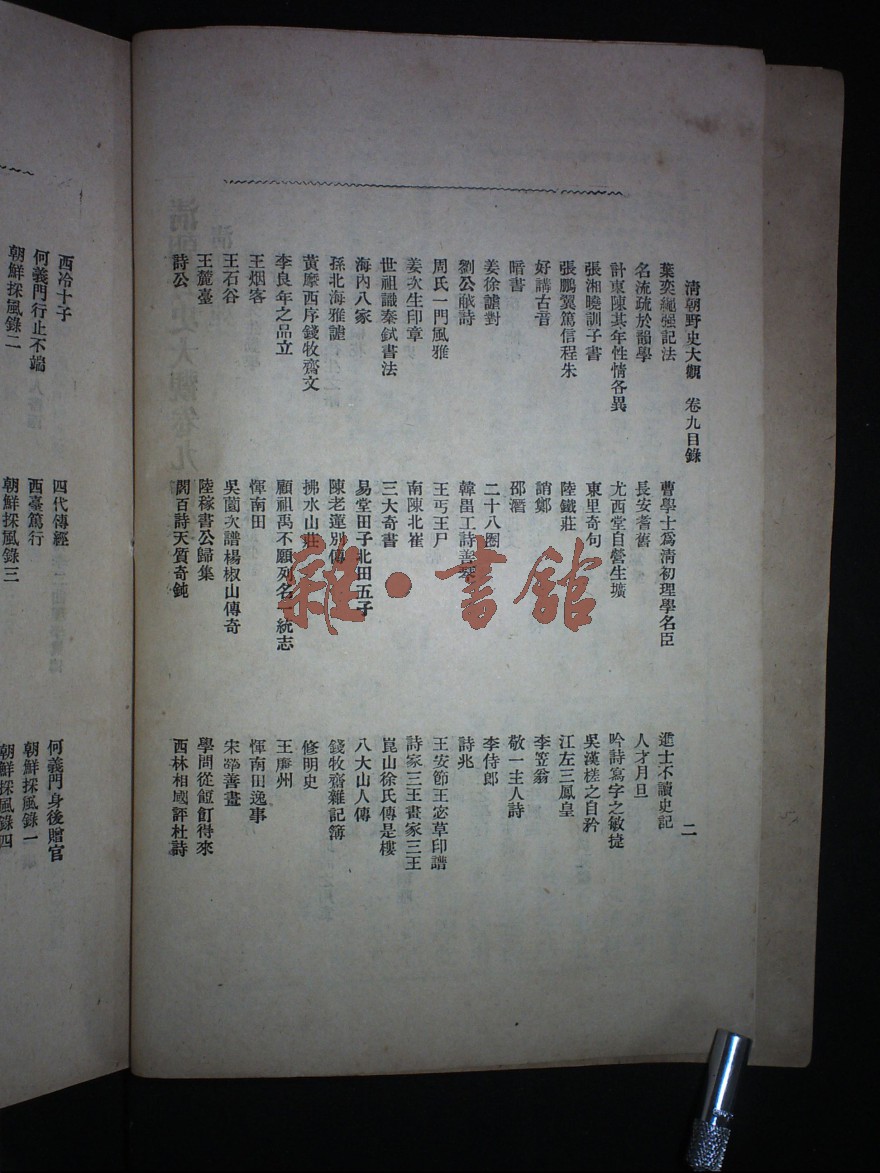 清朝野史大觀 卷九目錄 二
葉奕繩强記法
名流疏於韻學
計東陳其年性情各異
張湘曉訓子書
張鵬翼篤信程朱
好講古音
暗書
姜徐謔對
劉公㦷詩
周氏一門風雅
姜次生印章
世祖識秦鉽書法
海內八家
孫北海雅謔
黃摩西序錢牧齋文
李良年之品立
王烟客
王石谷
王麓臺
詩公
曹學士爲淸初理學名臣
長安耆舊
尤西堂自營生壙
東里奇句
陸鐵莊
誚鄭
邵潛
二十八圏
韓畕工詩善琴
王丐王尸
南陳北崔
三大奇書
易堂田子北田五子
陳老蓮別傳
拂水山莊
顧祖禹不願列名一統志
惲南田
吳薗次譜楊椒山傳奇
陸稼書公歸集
閻百詩天質奇鈍
進士不讀史記
人才月旦
吟詩寫字之敏捷
吳漢槎之自矜
江左三鳳皇
李笠翁
敬一主人詩
李侍郎
詩兆
王安節王宓草印譜
詩家三王畫家三王
崑山徐氏傳是樓
八大山人傳
錢牧齋雜記簿
修明史
王廉州
惲南田逸事
宋犖善畫
學問從餖飣得來
西林相國評杜詩
西泠十子
何義門行止不端
朝鮮採風錄二
四代傳經
西臺篤行
朝鮮採風錄三
何義門身後贈官
朝鮮採風錄一
朝鮮採風錄四
雜·書館